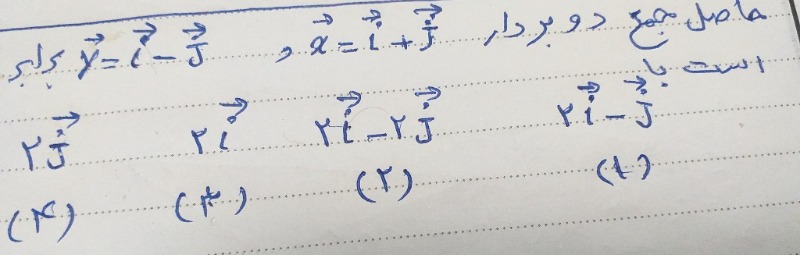 حاصل جمع دو بردار x⃗ = i⃗ + j⃗ و y⃗ = i⃗ − j⃗ برابر
است با
۲i⃗ − j⃗ ۲i⃗ − ۲j⃗ ۲i⃗ ۲j⃗
(۱) (۲) (۳) (۴)